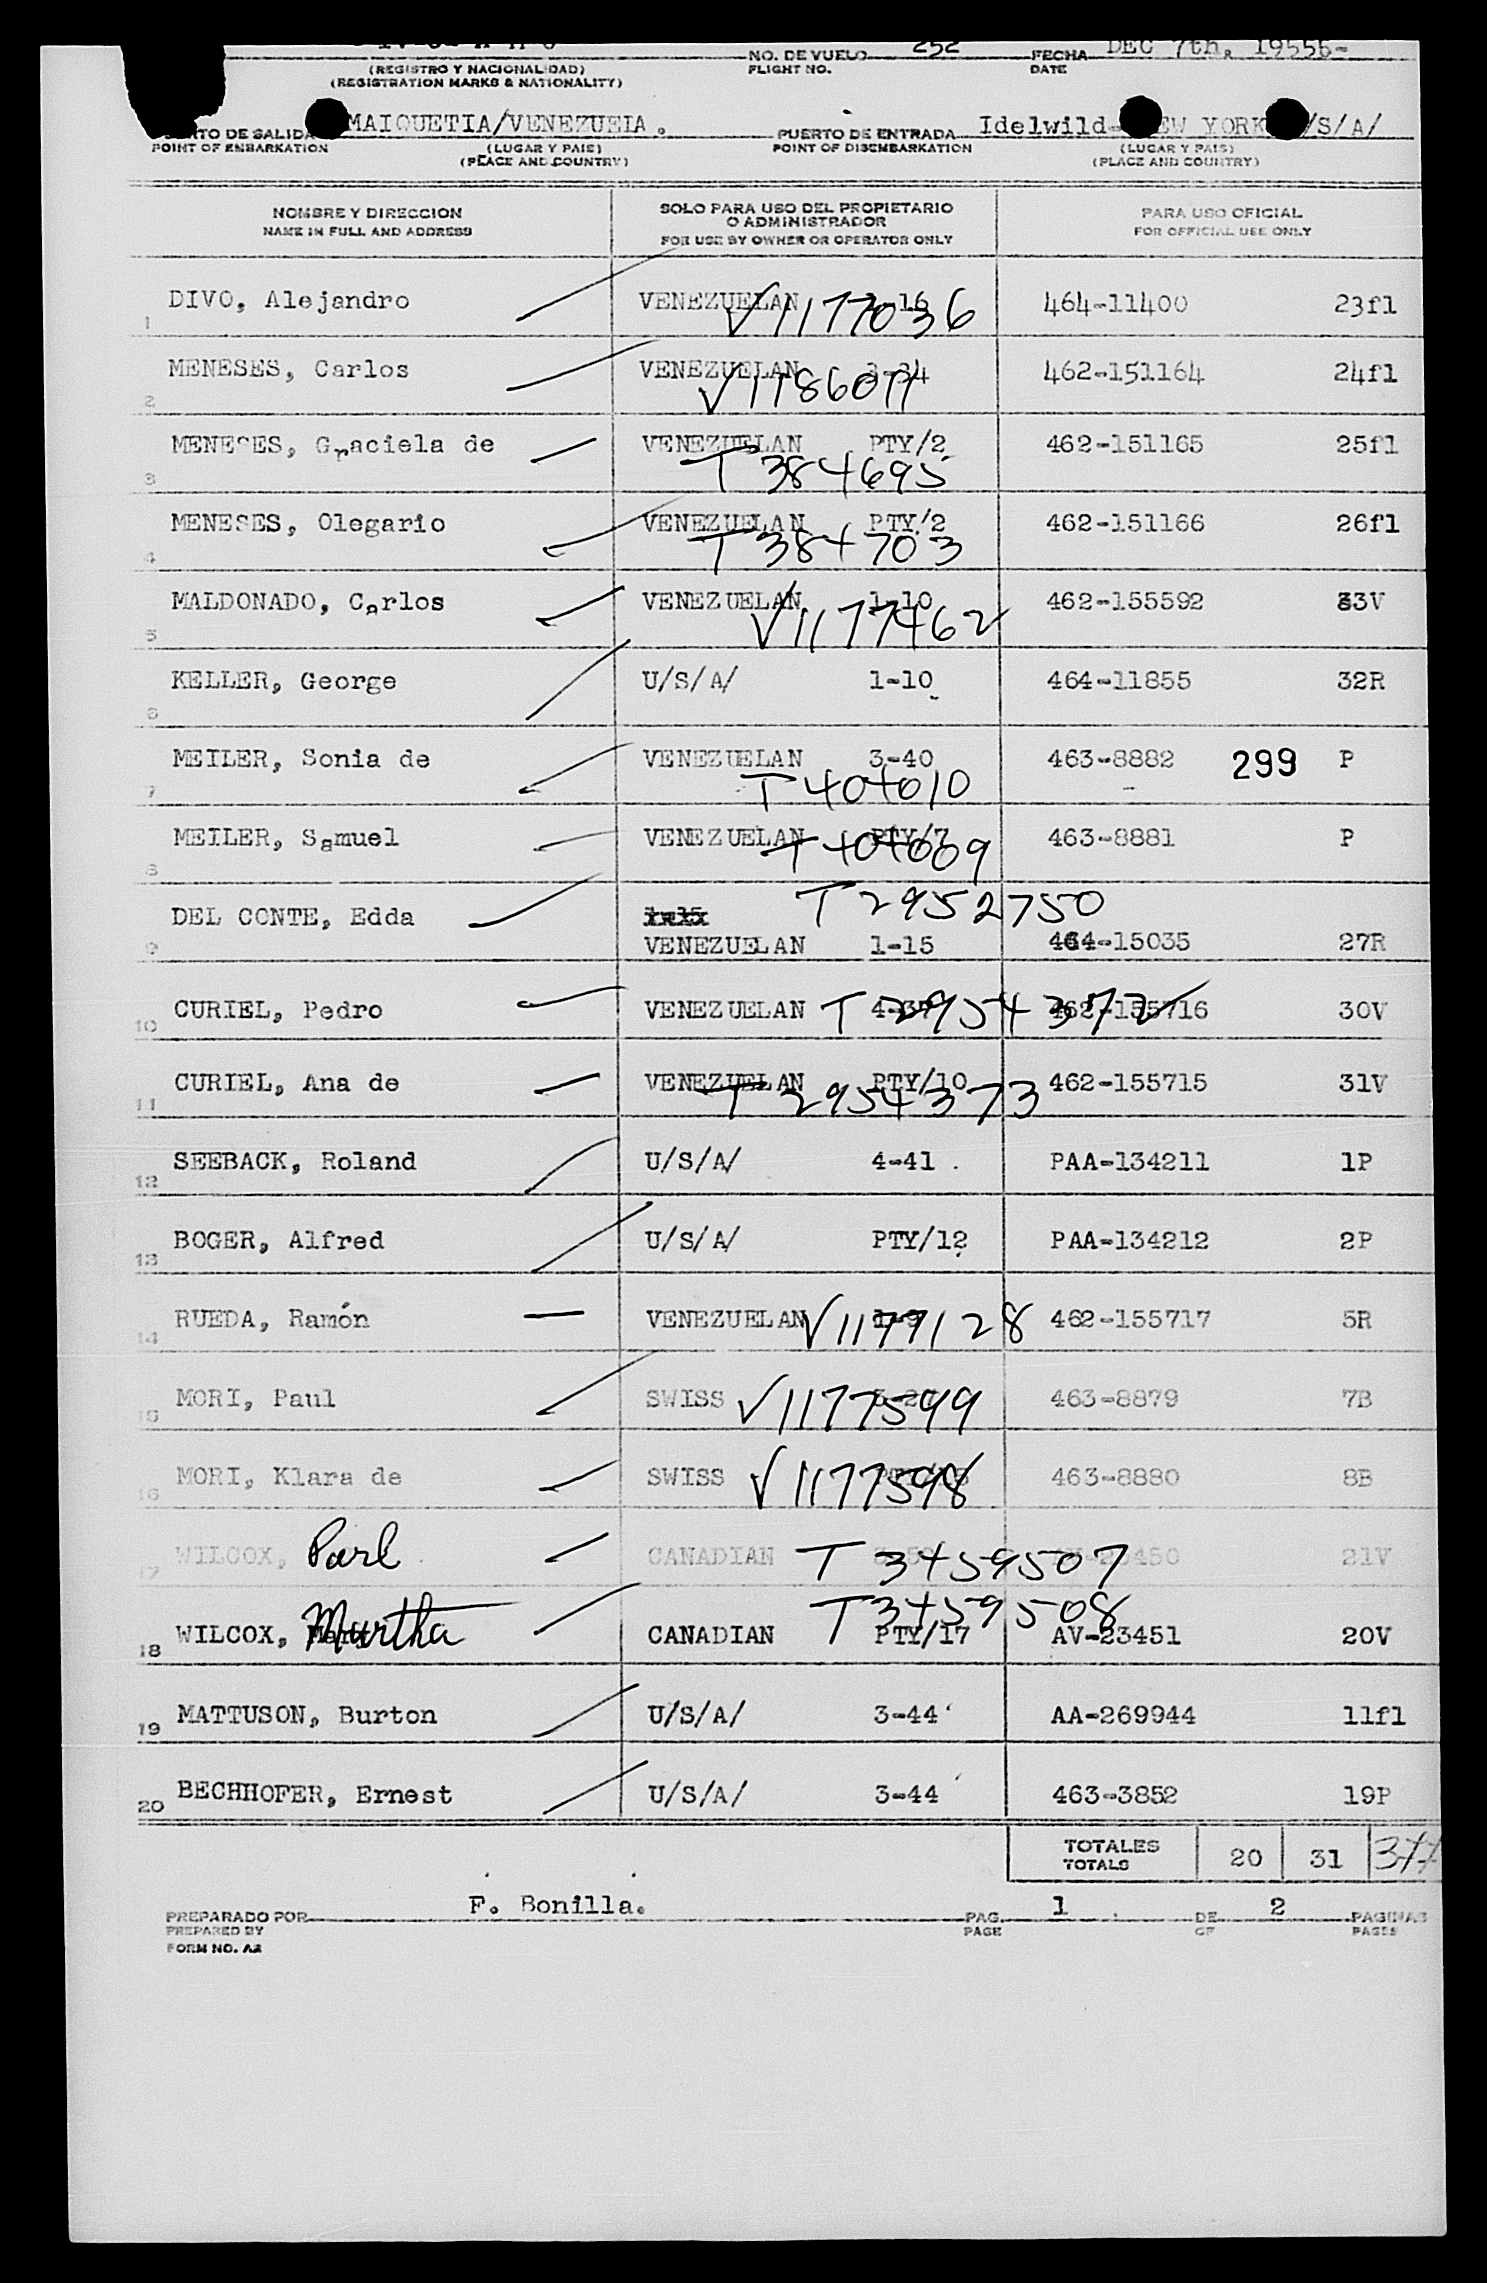 NO. DE VUELO 252 FECHA DEC 7th, 1955-
(REGISTRO Y NACIONALIDAD) FLIGHT NO. DATE
(REGISTRATION MARKS & NATIONALITY)
DE SALIDA MAIQUETIA/VENEZUELA. PUERTO DE ENTRADA Idelwild- YORK /S/A/
POINT OF EMBARKATION (LUGAR Y PAIS) POINT OF DISEMBARKATION (LUGAR Y PAIS)
(PLACE AND COUNTRY) (PLACE AND COUNTRY)
NOMBRE Y DIRECCION SOLO PARA USO DEL PROPIETARIO PARA USO OFICIAL
O ADMINISTRADOR
NAME IN FULL AND ADDRESS FOR USE BY OWNER OR OPERATOR ONLY FOR OFFICIAL USE ONLY
1 DIVO, Alejandro VENEZUELAN V1177036 464-11400 23fl
2 MENESES, Carlos VENEZUELAN 3-34 462-151164 24fl
3 MENESES, Graciela de VENEZUELAN PTY/2 T384695 462-151165 25fl
4 MENESES, Olegario VENEZUELAN PTY/2 T384703 462-151166 26fl
5 MALDONADO, Carlos VENEZUELAN 1-10 V1177462 462-155592 33V
6 KELLER, George U/S/A/ 1-10 464-11855 32R
7 MEILER, Sonia de VENEZUELAN 3-40 T404010 463-8882 299 P
8 MEILER, Samuel VENEZUELAN PTY/7 T404009 463-8881 P
9 DEL CONTE, Edda T2952750
VENEZUELAN 1-15 464-15035 27R
10 CURIEL, Pedro VENEZUELAN T2954372 462-155716 30V
11 CURIEL, Ana de VENEZUELAN PTY/10 T2954373 462-155715 31V
12 SEEBACK, Roland U/S/A/ 4-41 PAA-134211 1P
13 BOGER, Alfred U/S/A/ PTY/12 PAA-134212 2P
14 RUEDA, Ramón VENEZUELAN V1177128 462-155717 5R
15 MORI, Paul SWISS V1177599 463-8879 7B
16 MORI, Klara de SWISS V1177598 463-8880 8B
17 WILCOX, CANADIAN T3459507 21V
18 WILCOX, Martha CANADIAN PTY/17 T3459508 AV-23451 20V
19 MATTUSON, Burton U/S/A/ 3-44 AA-269944 11fl
20 BECHHOFER, Ernest U/S/A/ 3-44 463-3852 19P
TOTALES 20 31
TOTALS
PREPARADO POR F. Bonilla. PAG. 1 DE 2 PAGINAS
PREPARED BY PAGE OF PAGES
FORM NO. A2